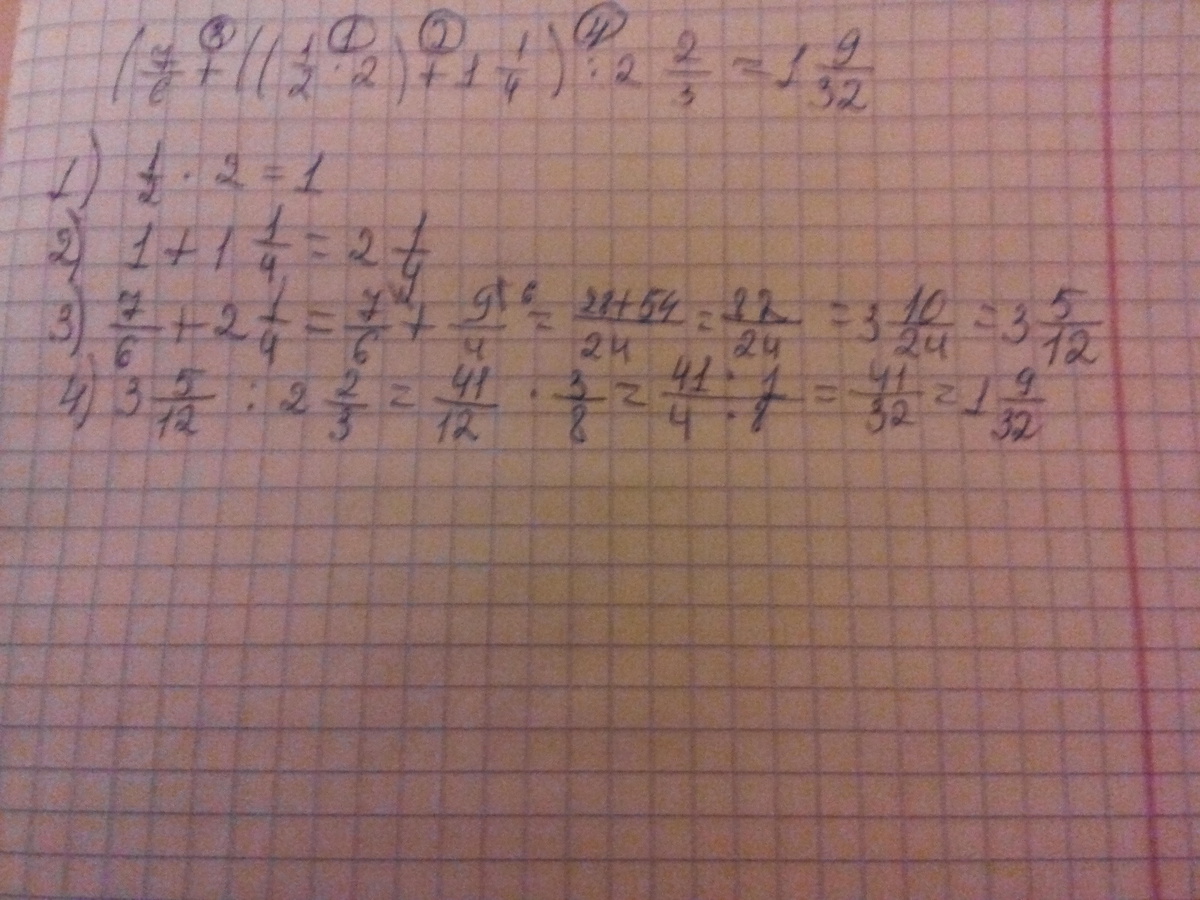 (7/6 + ((1/2 · 2) + 1 1/4) : 2 2/3 = 1 9/32
3 1 2 4
1) 1/2 · 2 = 1
2) 1 + 1 1/4 = 2 1/4
3) 7/6 + 2 1/4 = 7/6 + 9/4 = (28+54)/24 = 82/24 = 3 10/24 = 3 5/12
4) 3 5/12 : 2 2/3 = 41/12 · 3/8 = (41 · 1)/(4 · 8) = 41/32 = 1 9/32